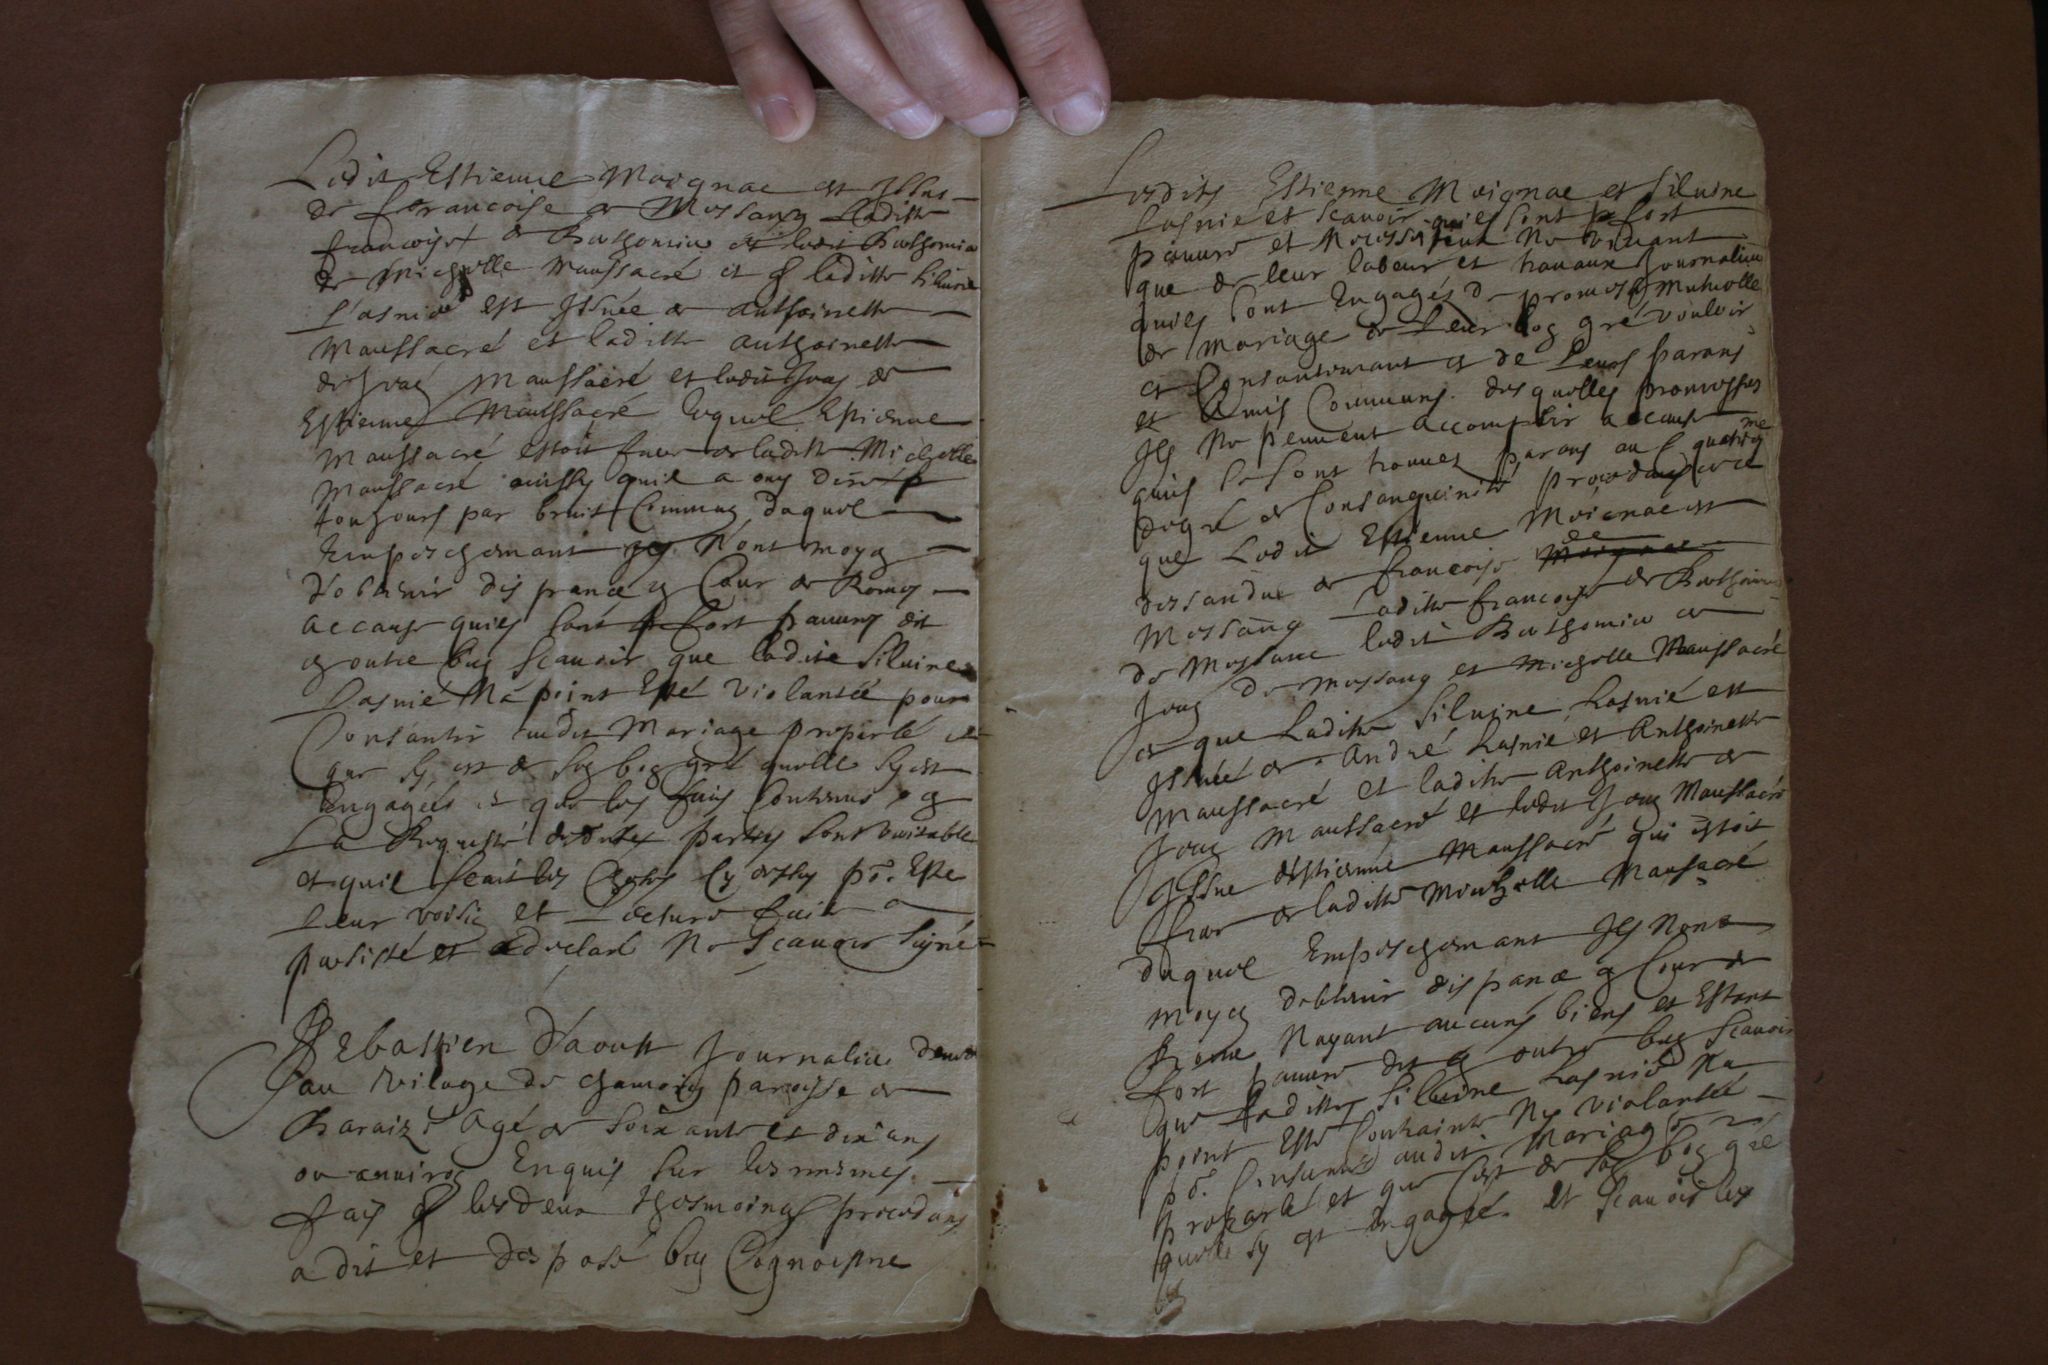 Ledit Estienne Moignac est Issus
de francoise de Messang Laditte
francoise de Barthomieu et ledit Barthomieu
de Michelle Maussacré et laditte Siluine
Lasnié est Issuee de anthoinette
Maussacré et laditte anthoinette
de Jean Maussacré et ledit Jean de
Estienne Maussacré lequel Estienne
Maussacré estoit frere de laditte Michelle
Maussacré ainssy quil a ouy dire
tousjours par bruit Commun duquel
Empeschemant Ils Nont moyen
d'obtenir dispance en Cour de Rome
accause quils sont fort pauures dit
en outre bien scauoir que ladite Siluine
Lasnié Na point Esté violantée pour
Consantir audit Mariage proparlé et
que sy est de son bon gré quelle sy est
Engagée et que les fais Contenus en
La Requeste desdites parties sont veritable
et quil scait les Choses cy dessus po.r Estre
Leur voisin et Lecture faite a
persisté et a declaré Ne Scauoir Signé
Sebastien D'aoust Journalier demt
au vilage de chamoin paroisse de
Baraize Agé de Soixante et dix ans
ou enuiron Enquis sur les mesmes
fais les deux tesmoins precedans
a dit et desposé bien Cognoistre
Lesdits Estienne Moignac et Siluine
Lasnié et scauoir quils sont fort
pauure et Necessiteux Ne viuant
que de leur labeur et trauaux Journaliers
quils sont Engagés de promesse Mutuelle
de Mariage de leur bon gré vouloir
et Consantemant et de Leurs parans
et Amis Communs. desquelles promesses
Ils Ne peuuent accomplir accause
quils se sont trouués parans au quatriesme
degré de Consanguinité procedant
que Ledit Estienne Moignac est
dessandu de francoise de
Messang Laditte francoise de Barthomieu
de Messanc ledit Barthomieu de
Jean de Messang et Michelle Maussacré
et que Laditte Siluine Lasnié est
Issuée de André Lasnié et Anthoinette
Maussacré et laditte Anthoinette de
Jean Maussacré et ledit Jean Maussacré
Issue d'Estienne Maussacré qui estoit
frere de laditte Michelle Maussacré
duquel Empeschemant Ils Nont
moyen dobtenir dispance en Cour de
Rome Nayant aucuns biens et Estant
fort pauure dit en outre bien scauoir
que laditte Siluine Lasnié Na
point Esté Contrainte Ny violantée
po.r Consantir audit Mariage
proparlé et que Cest de son bon gré
quelle sy est Engagée et Scauoir les